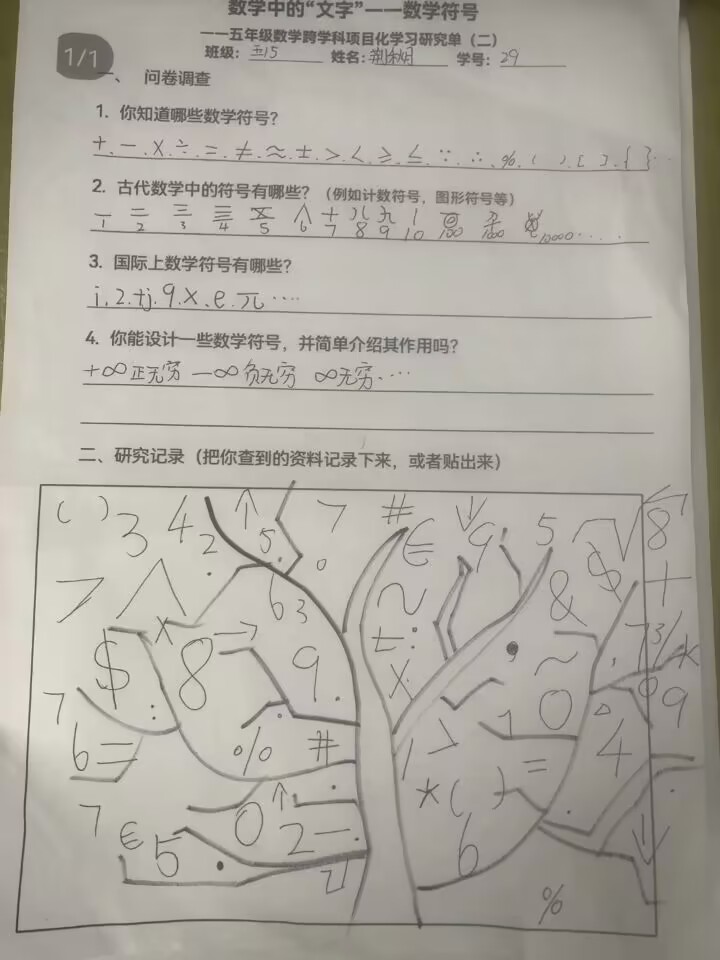 数学中的“文字”——数学符号
——五年级数学跨学科项目化学习研究单（二）
班级： 五15 姓名： 学号： 29
1/1
一、 问卷调查
1. 你知道哪些数学符号？
+.－.×.÷.=.≠.≈.±.>.<.≥.≤.∵.∴.%.( ).[ ].{ }…
2. 古代数学中的符号有哪些？（例如计数符号，图形符号等）
1 2 3 4 5 6 7 8 9 10 100 1000 10000……
3. 国际上数学符号有哪些？
i.2.tj.9.x.e.π….
4. 你能设计一些数学符号，并简单介绍其作用吗？
+∞正无穷 －∞负无穷 ∞无穷….
二、研究记录（把你查到的资料记录下来，或者贴出来）
( ) 3 4 2 ↑ 5 7 # € ↓ 9 5 √ 8
7 6 3 ~ & $ +
$ × 8 → 9 ± : x ~ 7 3
7 : 1 0 4 9
6 = % # 1 > = * ( )
7 € 5 0 ↑ 2 － 6 ↓
%